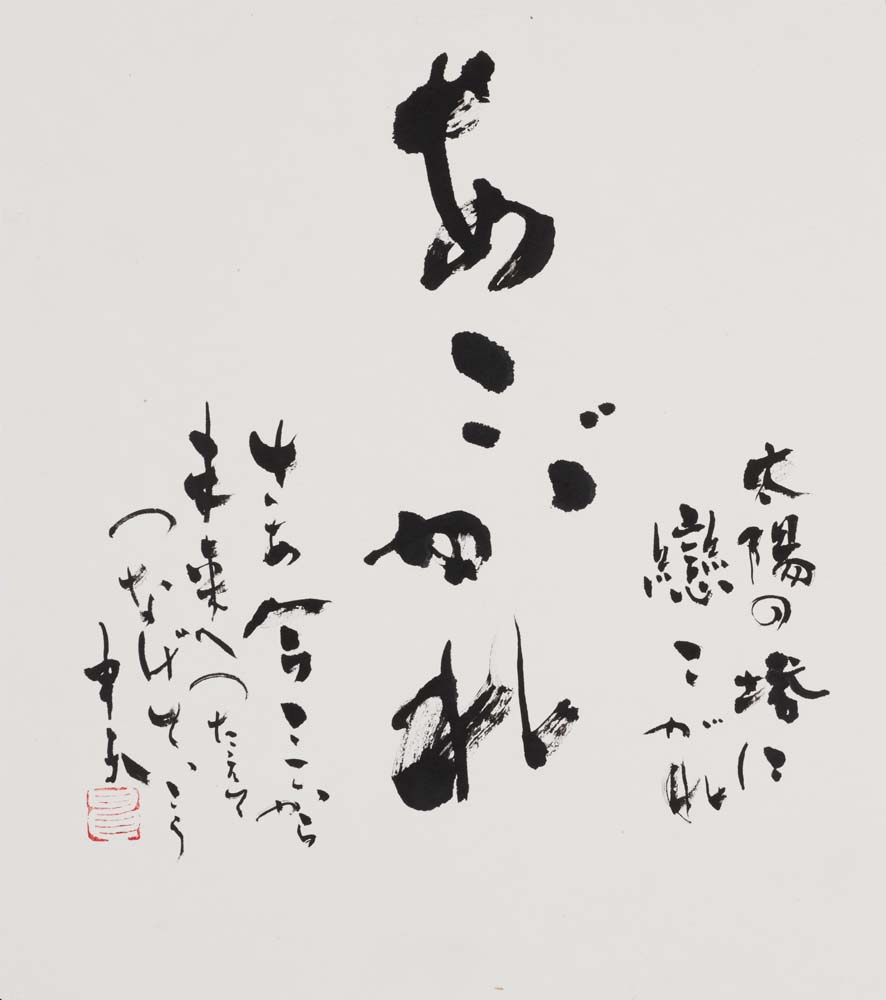 太陽の塔に
戀こがれ
あこがれ
さあ今ここから
未来へつたえて
つなげていこう